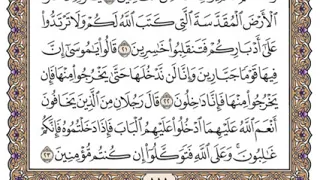 الْأَرْضَ الْمُقَدَّسَةَ الَّتِي كَتَبَ اللَّهُ لَكُمْ وَلَا تَرْتَدُّوا
عَلَىٰ أَدْبَارِكُمْ فَتَنْقَلِبُوا خَاسِرِينَ ٢١ قَالُوا يَا مُوسَىٰ إِنَّ
فِيهَا قَوْمًا جَبَّارِينَ وَإِنَّا لَنْ نَدْخُلَهَا حَتَّىٰ يَخْرُجُوا مِنْهَا فَإِنْ
يَخْرُجُوا مِنْهَا فَإِنَّا دَاخِلُونَ ٢٢ قَالَ رَجُلَانِ مِنَ الَّذِينَ يَخَافُونَ
أَنْعَمَ اللَّهُ عَلَيْهِمَا ادْخُلُوا عَلَيْهِمُ الْبَابَ فَإِذَا دَخَلْتُمُوهُ فَإِنَّكُمْ
غَالِبُونَ ۚ وَعَلَى اللَّهِ فَتَوَكَّلُوا إِنْ كُنْتُمْ مُؤْمِنِينَ ٢٣
١١١